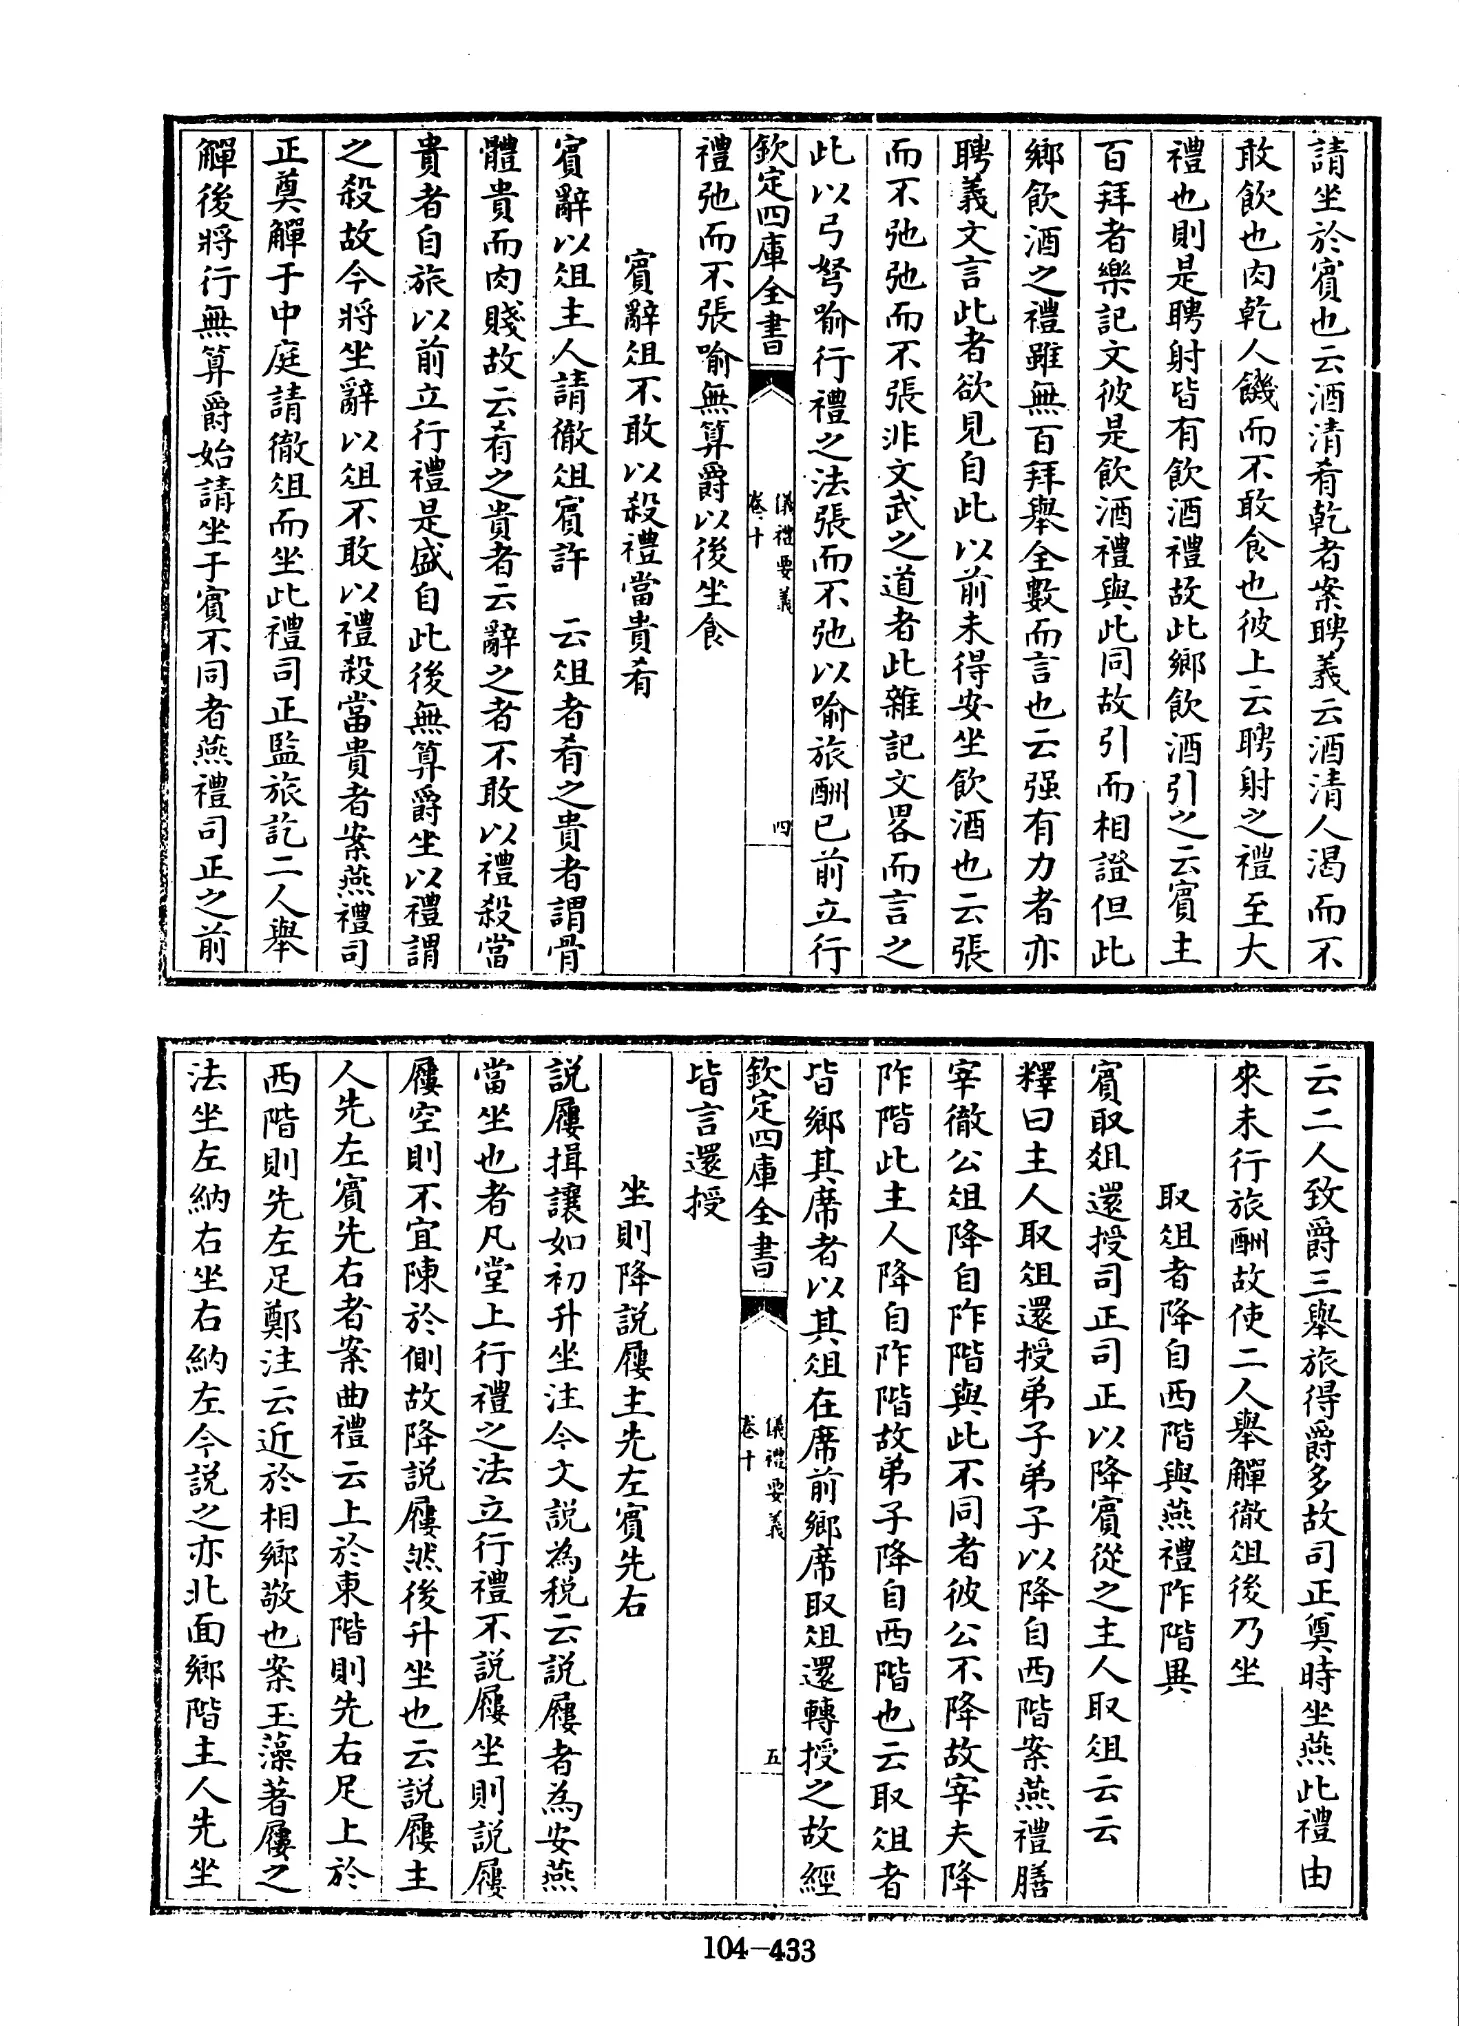 請坐於賓也云酒清肴乾者案聘義云酒清人渴而不
敢飲也肉乾人饑而不敢食也彼上云聘射之禮至大
禮也則是聘射皆有飲酒禮故此鄉飲酒引之云賓主
百拜者樂記文彼是飲酒禮與此同故引而相證但此
鄉飲酒之禮雖無百拜舉全數而言也云强有力者亦
聘義文言此者欲見自此以前未得安坐飲酒也云張
而不弛弛而不張非文武之道者此雜記文畧而言之
此以弓弩喻行禮之法張而不弛以喻旅酬已前立行
欽定四庫全書
儀禮要義
卷十
四
禮弛而不張喻無算爵以後坐食
賓辭俎不敢以殺禮當貴肴
賓辭以俎主人請徹俎賓許 云俎者肴之貴者謂骨
體貴而肉賤故云肴之貴者云辭之者不敢以禮殺當
貴者自旅以前立行禮是盛自此後無算爵坐以禮謂
之殺故今將坐辭以俎不敢以禮殺當貴者案燕禮司
正奠觶于中庭請徹俎而坐此禮司正監旅訖二人舉
觶後將行無算爵始請坐于賓不同者燕禮司正之前
云二人致爵三舉旅得爵多故司正奠時坐燕此禮由
來未行旅酬故使二人舉觶徹俎後乃坐
取俎者降自西階與燕禮阼階異
賓取俎還授司正司正以降賓從之主人取俎云云
釋曰主人取俎還授弟子弟子以降自西階案燕禮膳
宰徹公俎降自阼階與此不同者彼公不降故宰夫降
阼階此主人降自阼階故弟子降自西階也云取俎者
皆鄉其席者以其俎在席前鄉席取俎還轉授之故經
欽定四庫全書
儀禮要義
卷十
五
皆言還授
坐則降説屨主先左賓先右
説屨揖讓如初升坐注今文説為税云説屨者為安燕
當坐也者凡堂上行禮之法立行禮不説屨坐則説屨
屨空則不宜陳於側故降説屨然後升坐也云説屨主
人先左賓先右者案曲禮云上於東階則先右足上於
西階則先左足鄭注云近於相鄉敬也案玉藻著屨之
法坐左納右坐右納左今説之亦北面鄉階主人先坐
104-433